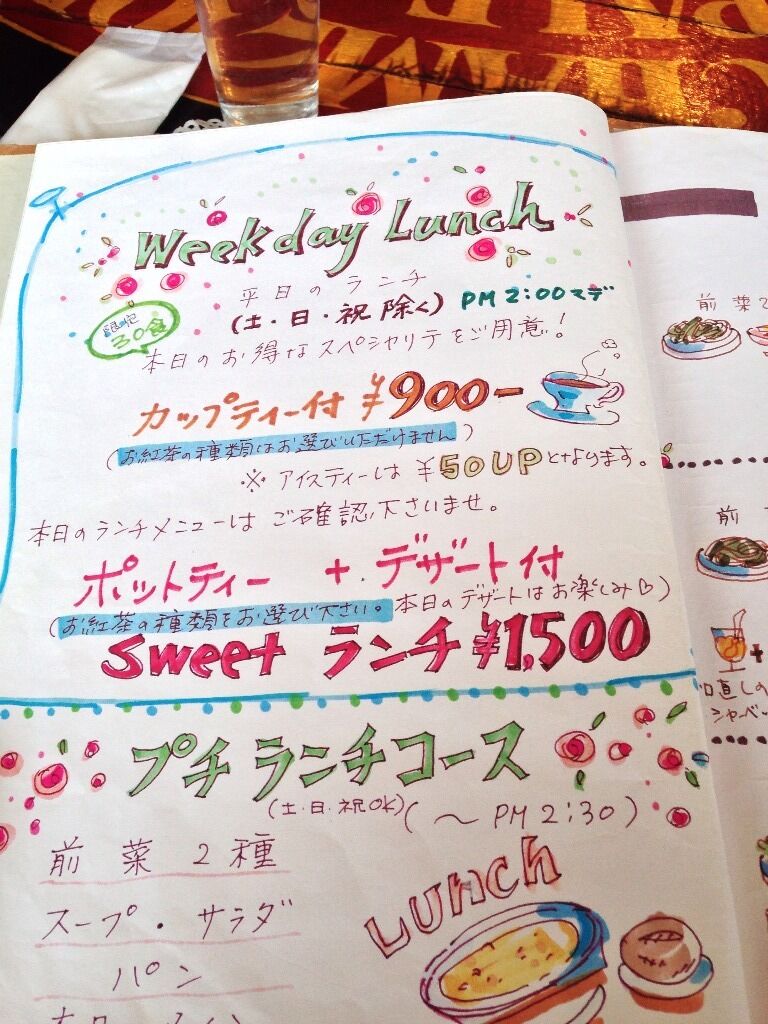 Weekday Lunch
平日のランチ
限定
30食
(土・日・祝除く) PM 2:00マデ
本日のお得なスペシャリテをご用意!
カップティー付 ¥900-
(お紅茶の種類はお選びいただけません)
※ アイスティーは ¥50UPとなります。
本日のランチメニューは ご確認下さいませ。
ポットティー + デザート付
(お紅茶の種類をお選び下さい。 本日のデザートはお楽しみ♡)
sweet ランチ ¥1,500
プチ ランチコース
(土・日・祝OK) (~PM 2:30)
前菜2種
スープ・サラダ
パン
LUNCH
前菜
前
+
口直しの
シャーベ